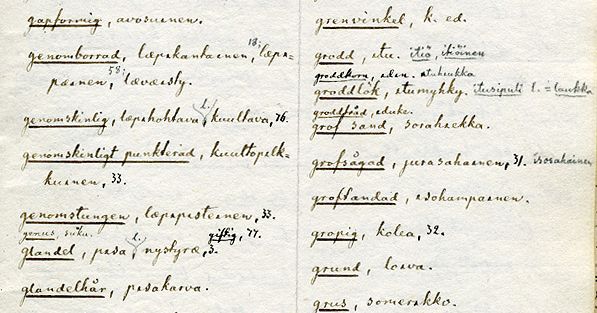 gapformig, avosuinen.
genomborrad, læpikantainen, 18; læpi-
pæinen, 58; lævæisty.
genomskinlig, læpihohtava, l. kuultava, 76.
genomskinligt punkterad, kuultopilk-
kuinen, 33.
genomstungen, læpipisteinen, 33.
genus, suku. giftig, 77.
glandel, pisa l. nystyræ, 3.
glandelhår, pisakarva.
grenvinkel, k. ed.
grodd, itu. itiö, itiöinen
groddkorn, iden. ituhiukka
groddlök, itumykky. itusipuli l. = laukka
groddtråd, iduke.
grof sand, sorahiekka.
grofsågad, jurosahainen, 31. isosahainen
groftandad, isohampainen.
gropig, kolea, 32.
grund, loiva.
grus, somerikko.